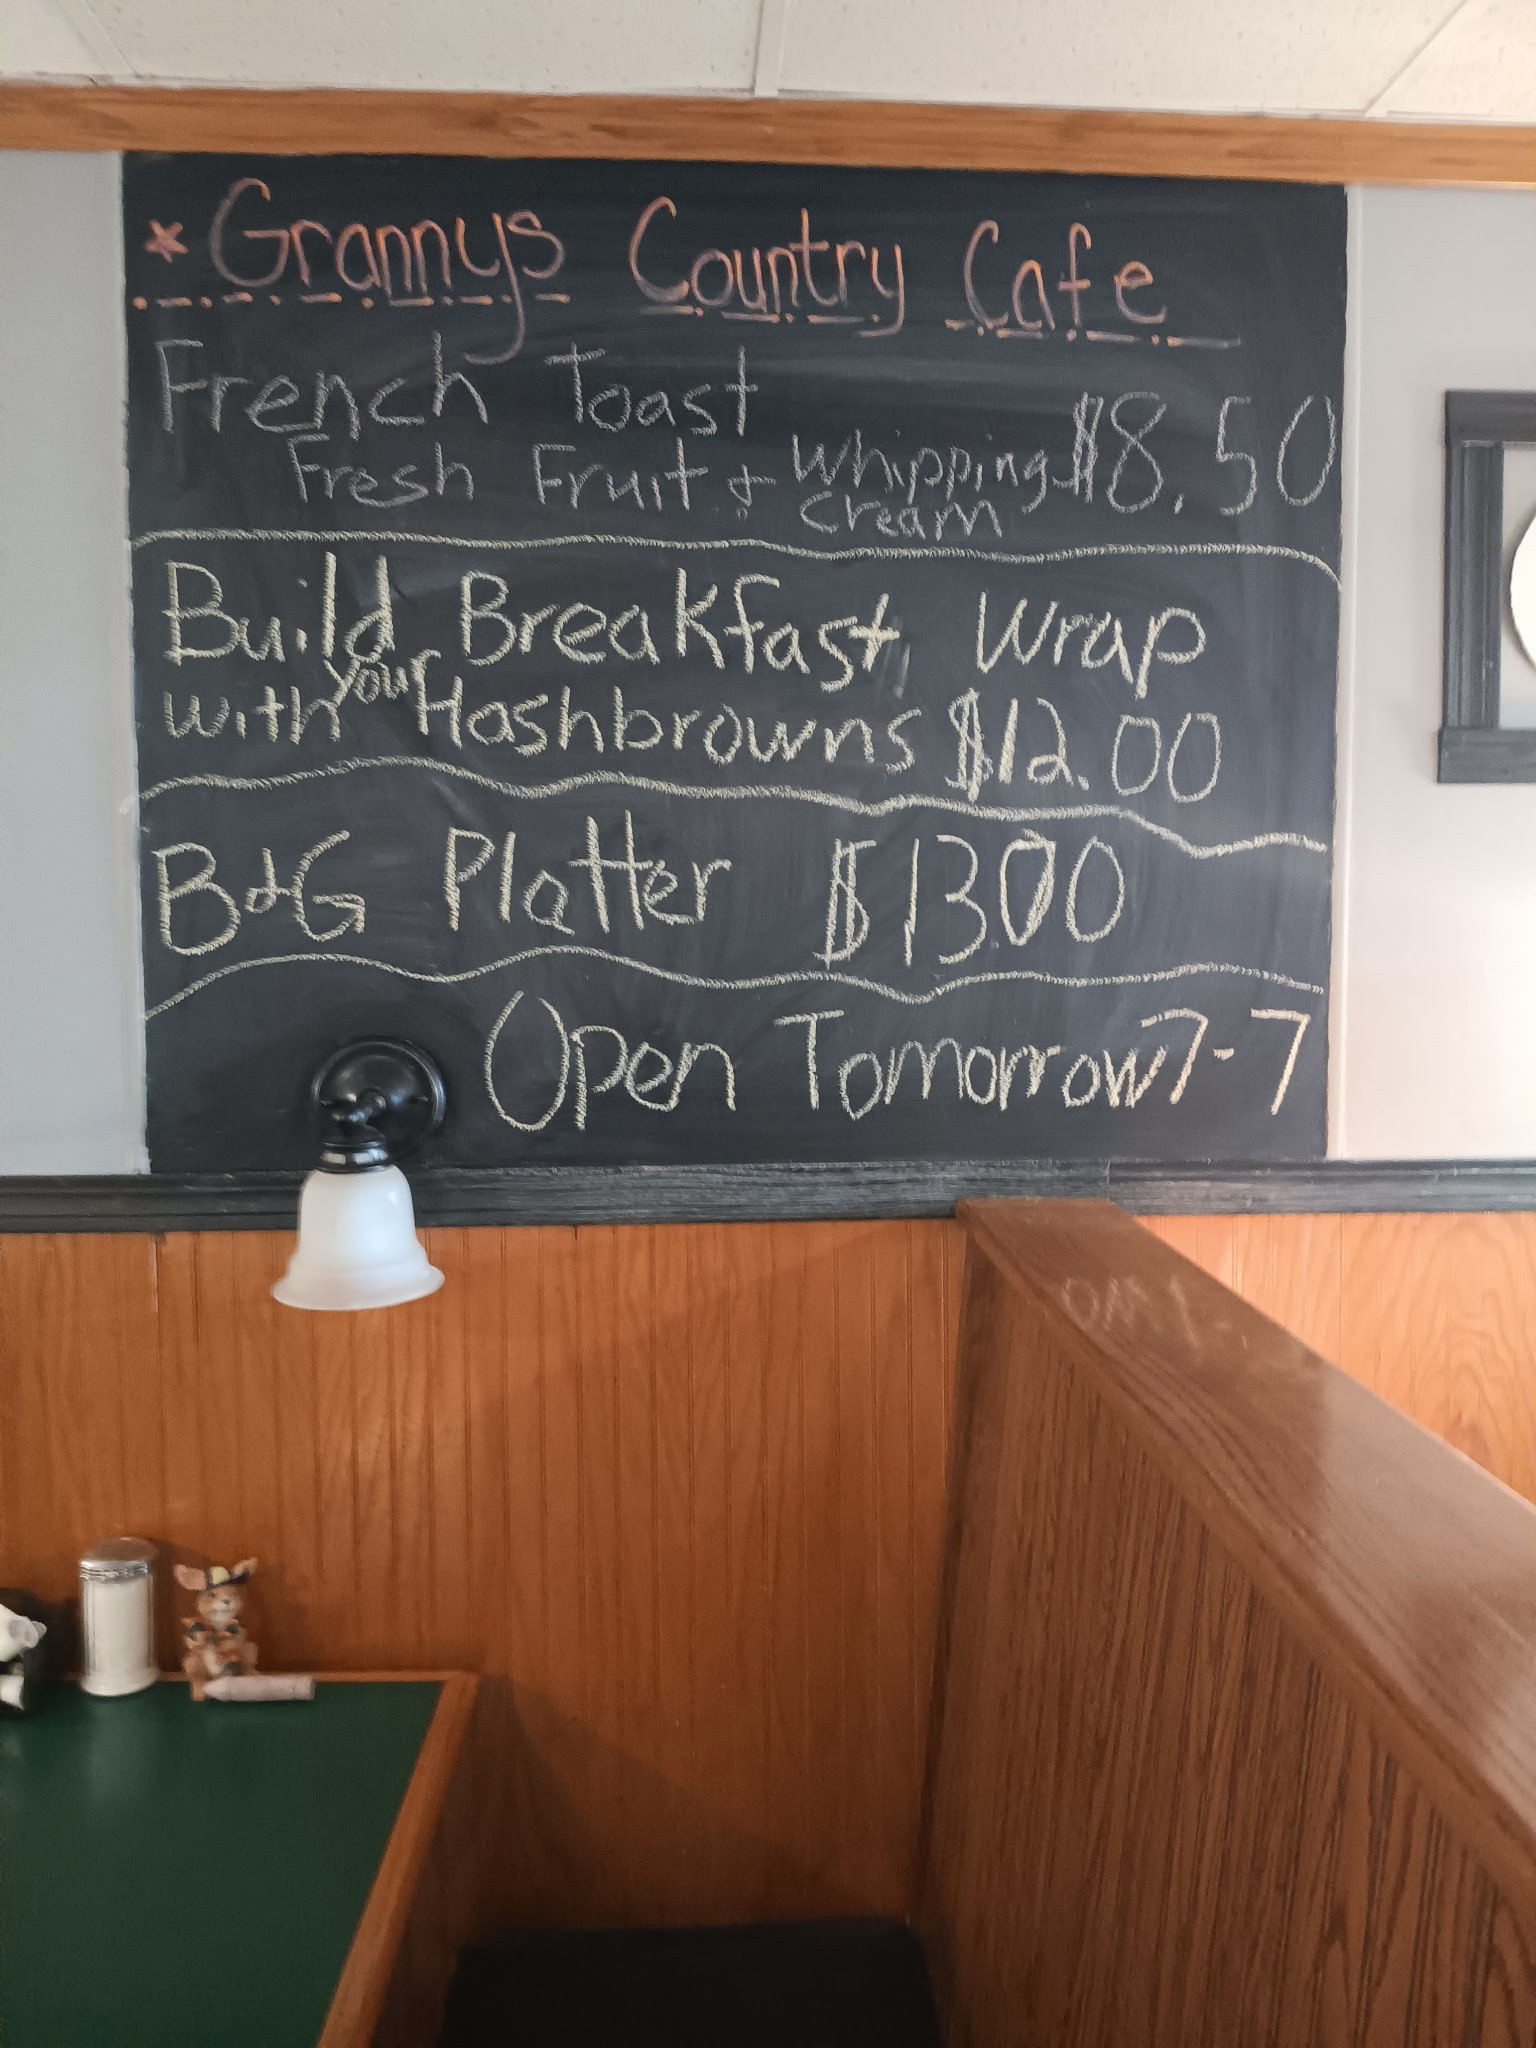 * Grannys Country Cafe
French Toast
Fresh Fruit & Whipping $8.50
Cream
Build Breakfast Wrap
your
with Hashbrowns $12.00
B&G Platter $13.00
Open Tomorrow 7-7